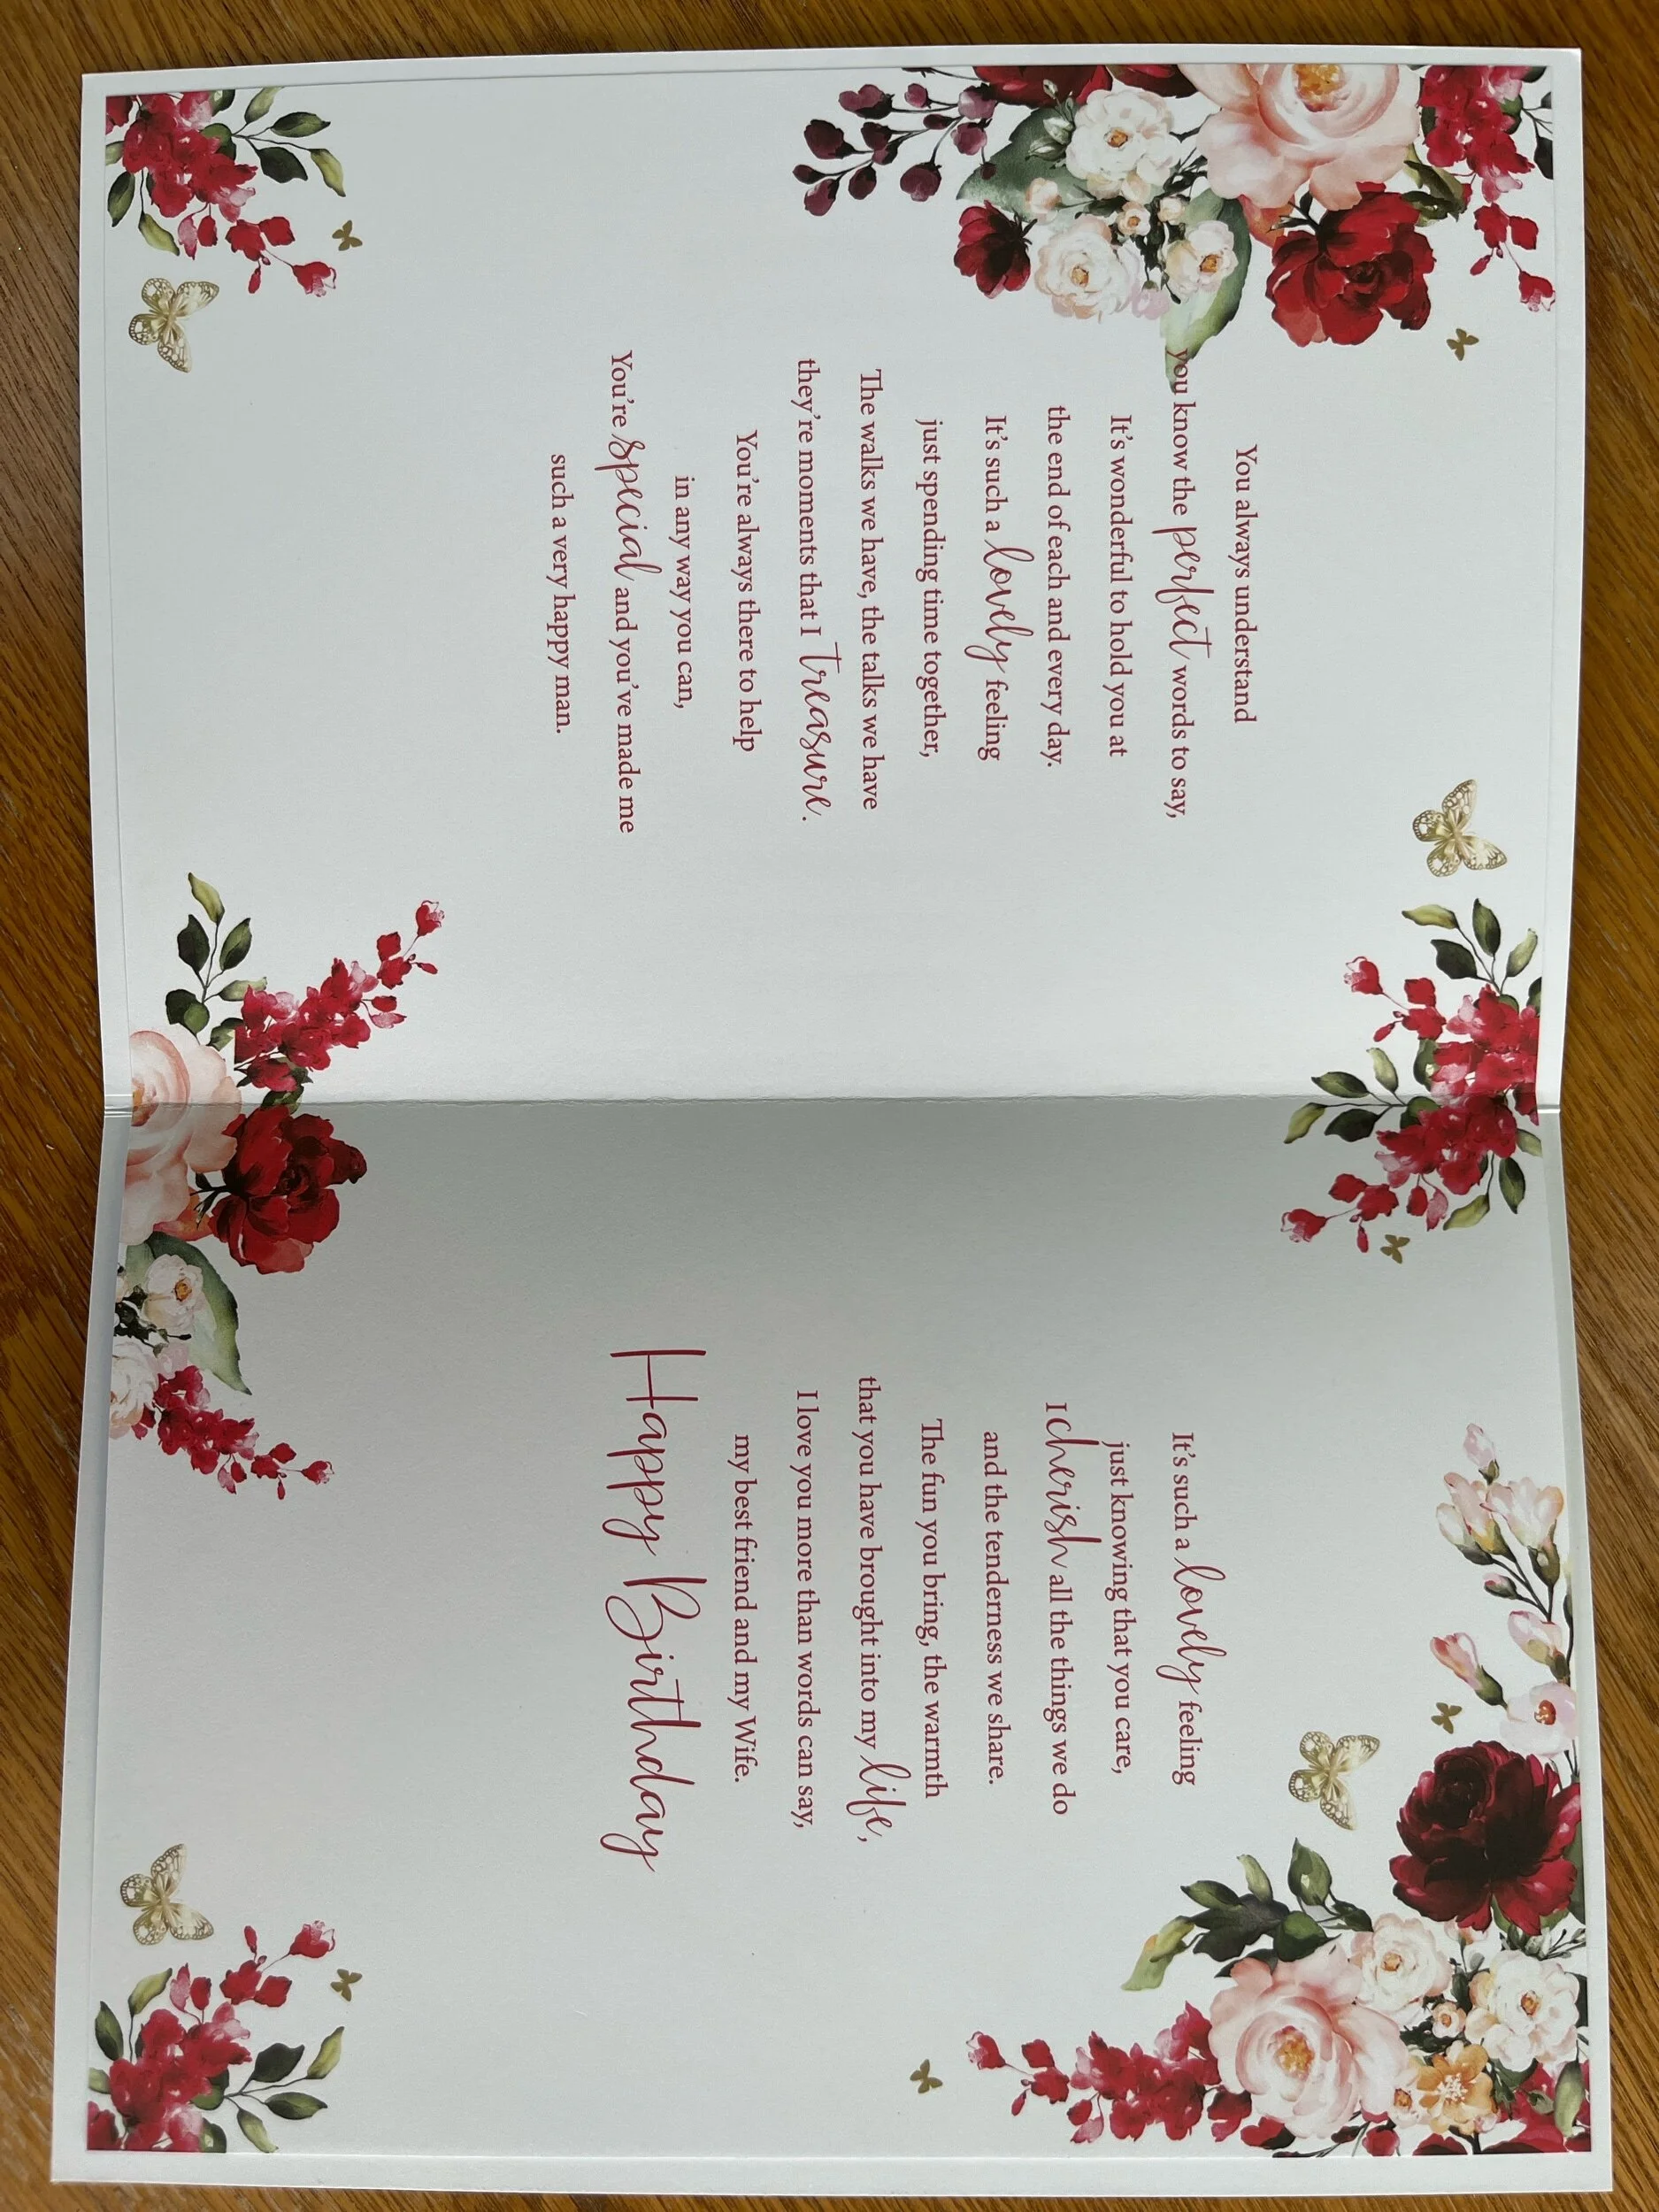 You always understand
you know the perfect words to say,
It's wonderful to hold you at
the end of each and every day.
It's such a lovely feeling
just spending time together,
The walks we have, the talks we have
they're moments that I treasure.
You're always there to help
in any way you can,
You're special and you've made me
such a very happy man.
It's such a lovely feeling
just knowing that you care,
I cherish all the things we do
and the tenderness we share.
The fun you bring, the warmth
that you have brought into my life,
I love you more than words can say,
my best friend and my Wife.
Happy Birthday